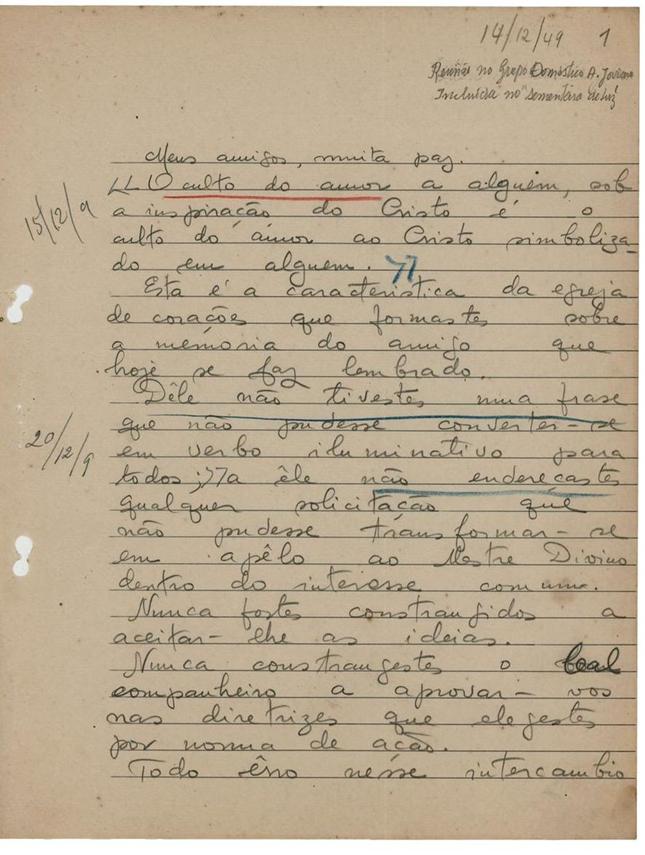 14/12/49 1
Reunião no Grupo Doméstico A. Joviano
Incluída no "sementeira de luz"
Meus amigos, muita paz.
"O culto do amor a alguém, sob
15/12/9
a inspiração do Cristo é o
culto do amor ao Cristo simboliza-
do em alguem."
Esta é a caracteristica da egreja
de corações que formastes sobre
a memória do amigo que
hoje se faz lembrado.
Dêle não tivestes uma frase
20/12/9
que não pudesse converter-se
em verbo iluminativo para
todos; a êle não endereçastes
qualquer solicitação que
não pudesse transformar-se
em apêlo ao Mestre Divino
dentro do interesse comum.
Nunca fostes constrangidos a
aceitar-lhe as ideias.
Nunca constrangestes o leal
companheiro a aprovar-vos
nas diretrizes que elegestes
por norma de ação.
Todo êsso nésse intercambio